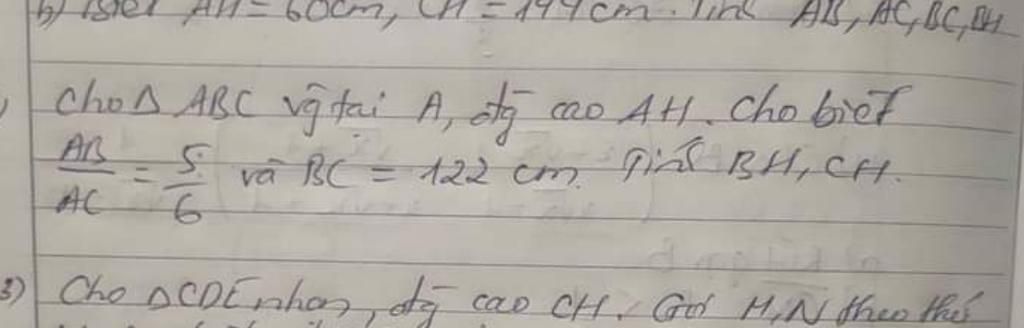 b) Biết AH = 60cm, CH = 144cm. Tính AB, AC, BC, BH
Cho Δ ABC vg̃ tại A, đg̃ cao AH. Cho biết
AB/AC = 5/6 và BC = 122 cm. Tính BH, CH.
3) Cho ΔCDE nhọn, đg̃ cao CH. Gọi M, N theo thứ